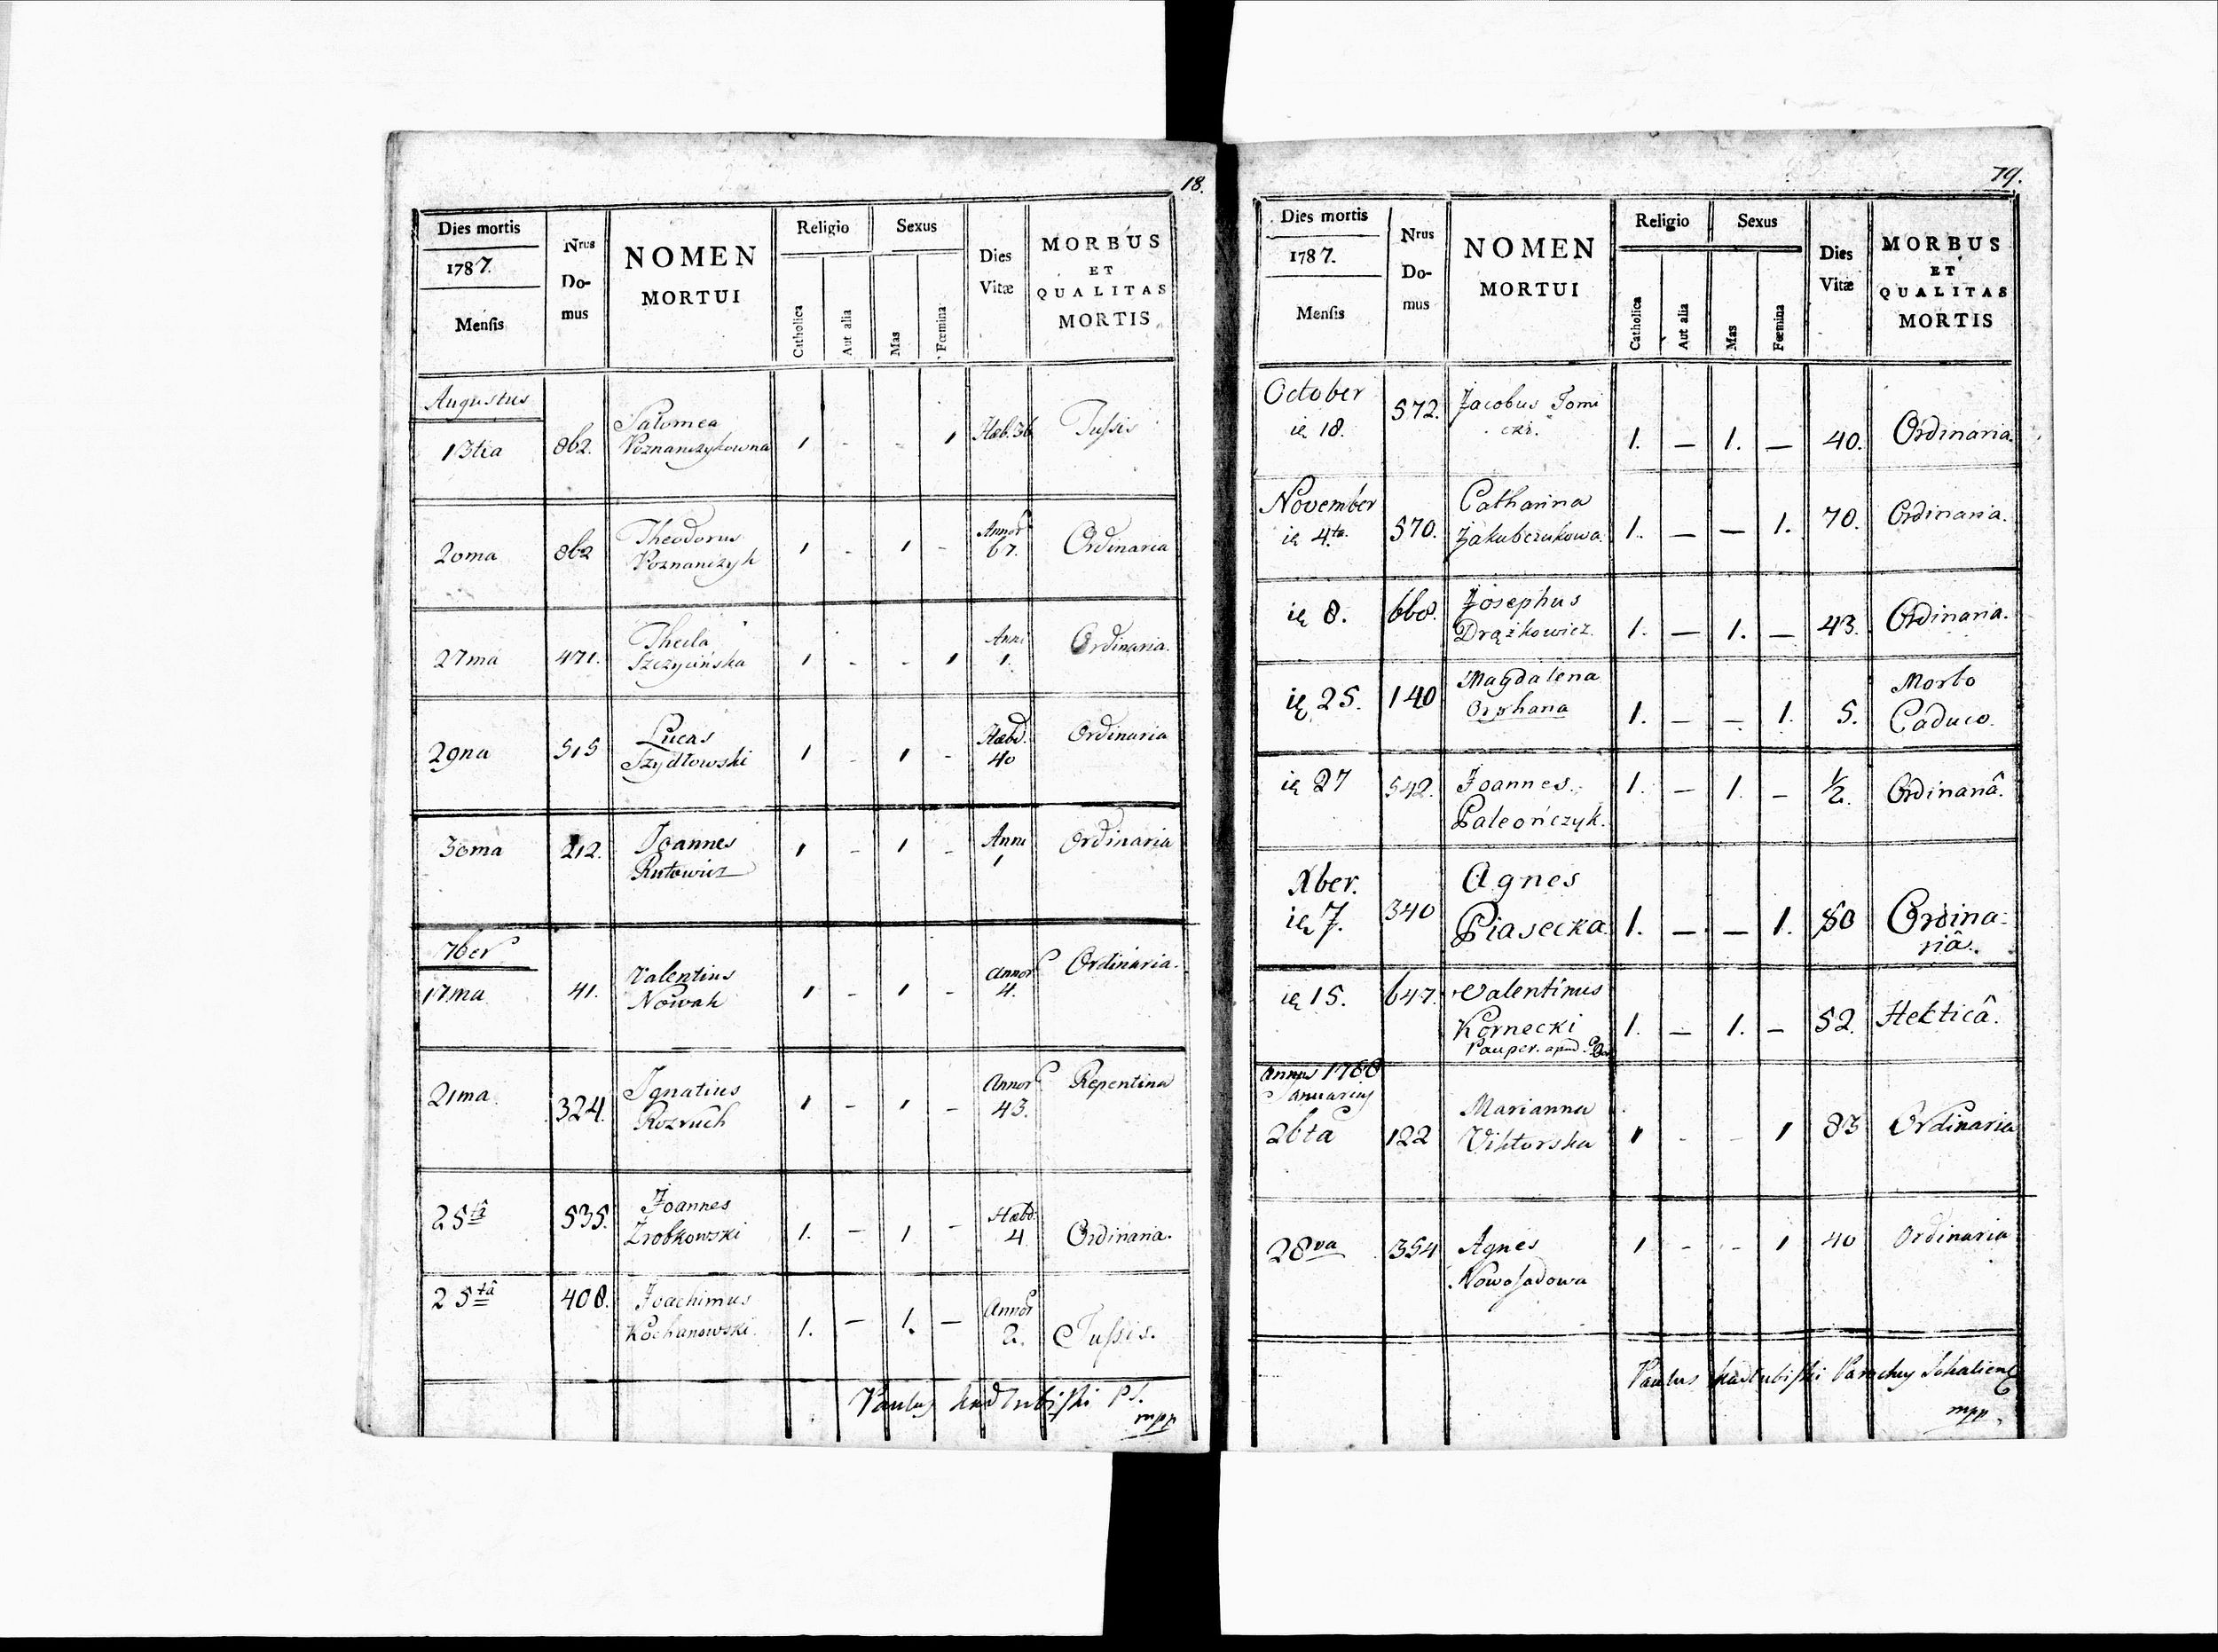 18.
Dies mortis
1787.
Mensis
Nrus
Do-
mus
NOMEN
MORTUI
Religio
Catholica
Aut alia
Sexus
Mas
Fœmina
Dies
Vitæ
MORBUS
ET
QUALITAS
MORTIS
Augustus
13tia 862. Salomea Hæb. 36 Tussis
Poznanczykowna 1 - - 1
20ma 862 Theodorus Annor
Poznanczyk 1 - 1 - 67. Ordinaria
27ma 471. Thecla Anni Ordinaria.
Szczycińska 1 - - 1 1.
29na 515 Lucas Hæbd. Ordinaria
Szydłowski 1 - 1 - 40
30ma 212. Joannes 1 - 1 - Anni Ordinaria
Rutowicz 1
7ber
17ma 41. Valentius Annor Ordinaria.
Nowak 1 - 1 - 4.
21ma 324. Ignatius Annor Repentina
Rozruch 1 - 1 - 43.
25ta 535. Joannes Hæbd.
Zrobkowski 1. - 1 - 4 Ordinaria.
25tâ 408. Joachimus Annor
Kochanowski. 1. - 1. - 2. Tussis.
Paulus Kadlubiski
mpp
79.
Dies mortis
1787.
Mensis
Nrus
Do-
mus
NOMEN
MORTUI
Religio
Catholica
Aut alia
Sexus
Mas
Fœmina
Dies
Vitæ
MORBUS
ET
QUALITAS
MORTIS
October 572. Jacobus Tomi
ię 18. cki. 1. — 1. — 40. Ordinaria.
November Catharina
ię 4ta. 570. Jakubczukowa. 1. — — 1. 70. Ordinaria.
ię 8. 668. Josephus
Drążkowicz. 1. — 1. — 43. Ordinaria.
ię 25. 140 Magdalena Morbo
Orphana 1. — — 1. 5. Caduco.
ię 27 542. Joannes. 1. — 1. — ½. Ordinariâ.
Paleończyk.
Xber. Agnes
ię 7. 340 Piasecka. 1. — — 1. 80 Ordina-
riâ.
ię 15. 647. Valentinus
Kornecki 1. — 1. — 52. Hekticâ.
Pauper. apud
Annus 1788
Januarius Marianna
26ta 122 Viktorska 1 - - 1 83 Ordinaria
28va 354 Agnes 1 - - 1 40 Ordinaria
Nowosadowa
Paulus Kadlubiski Parochus Sokaliens
mpp